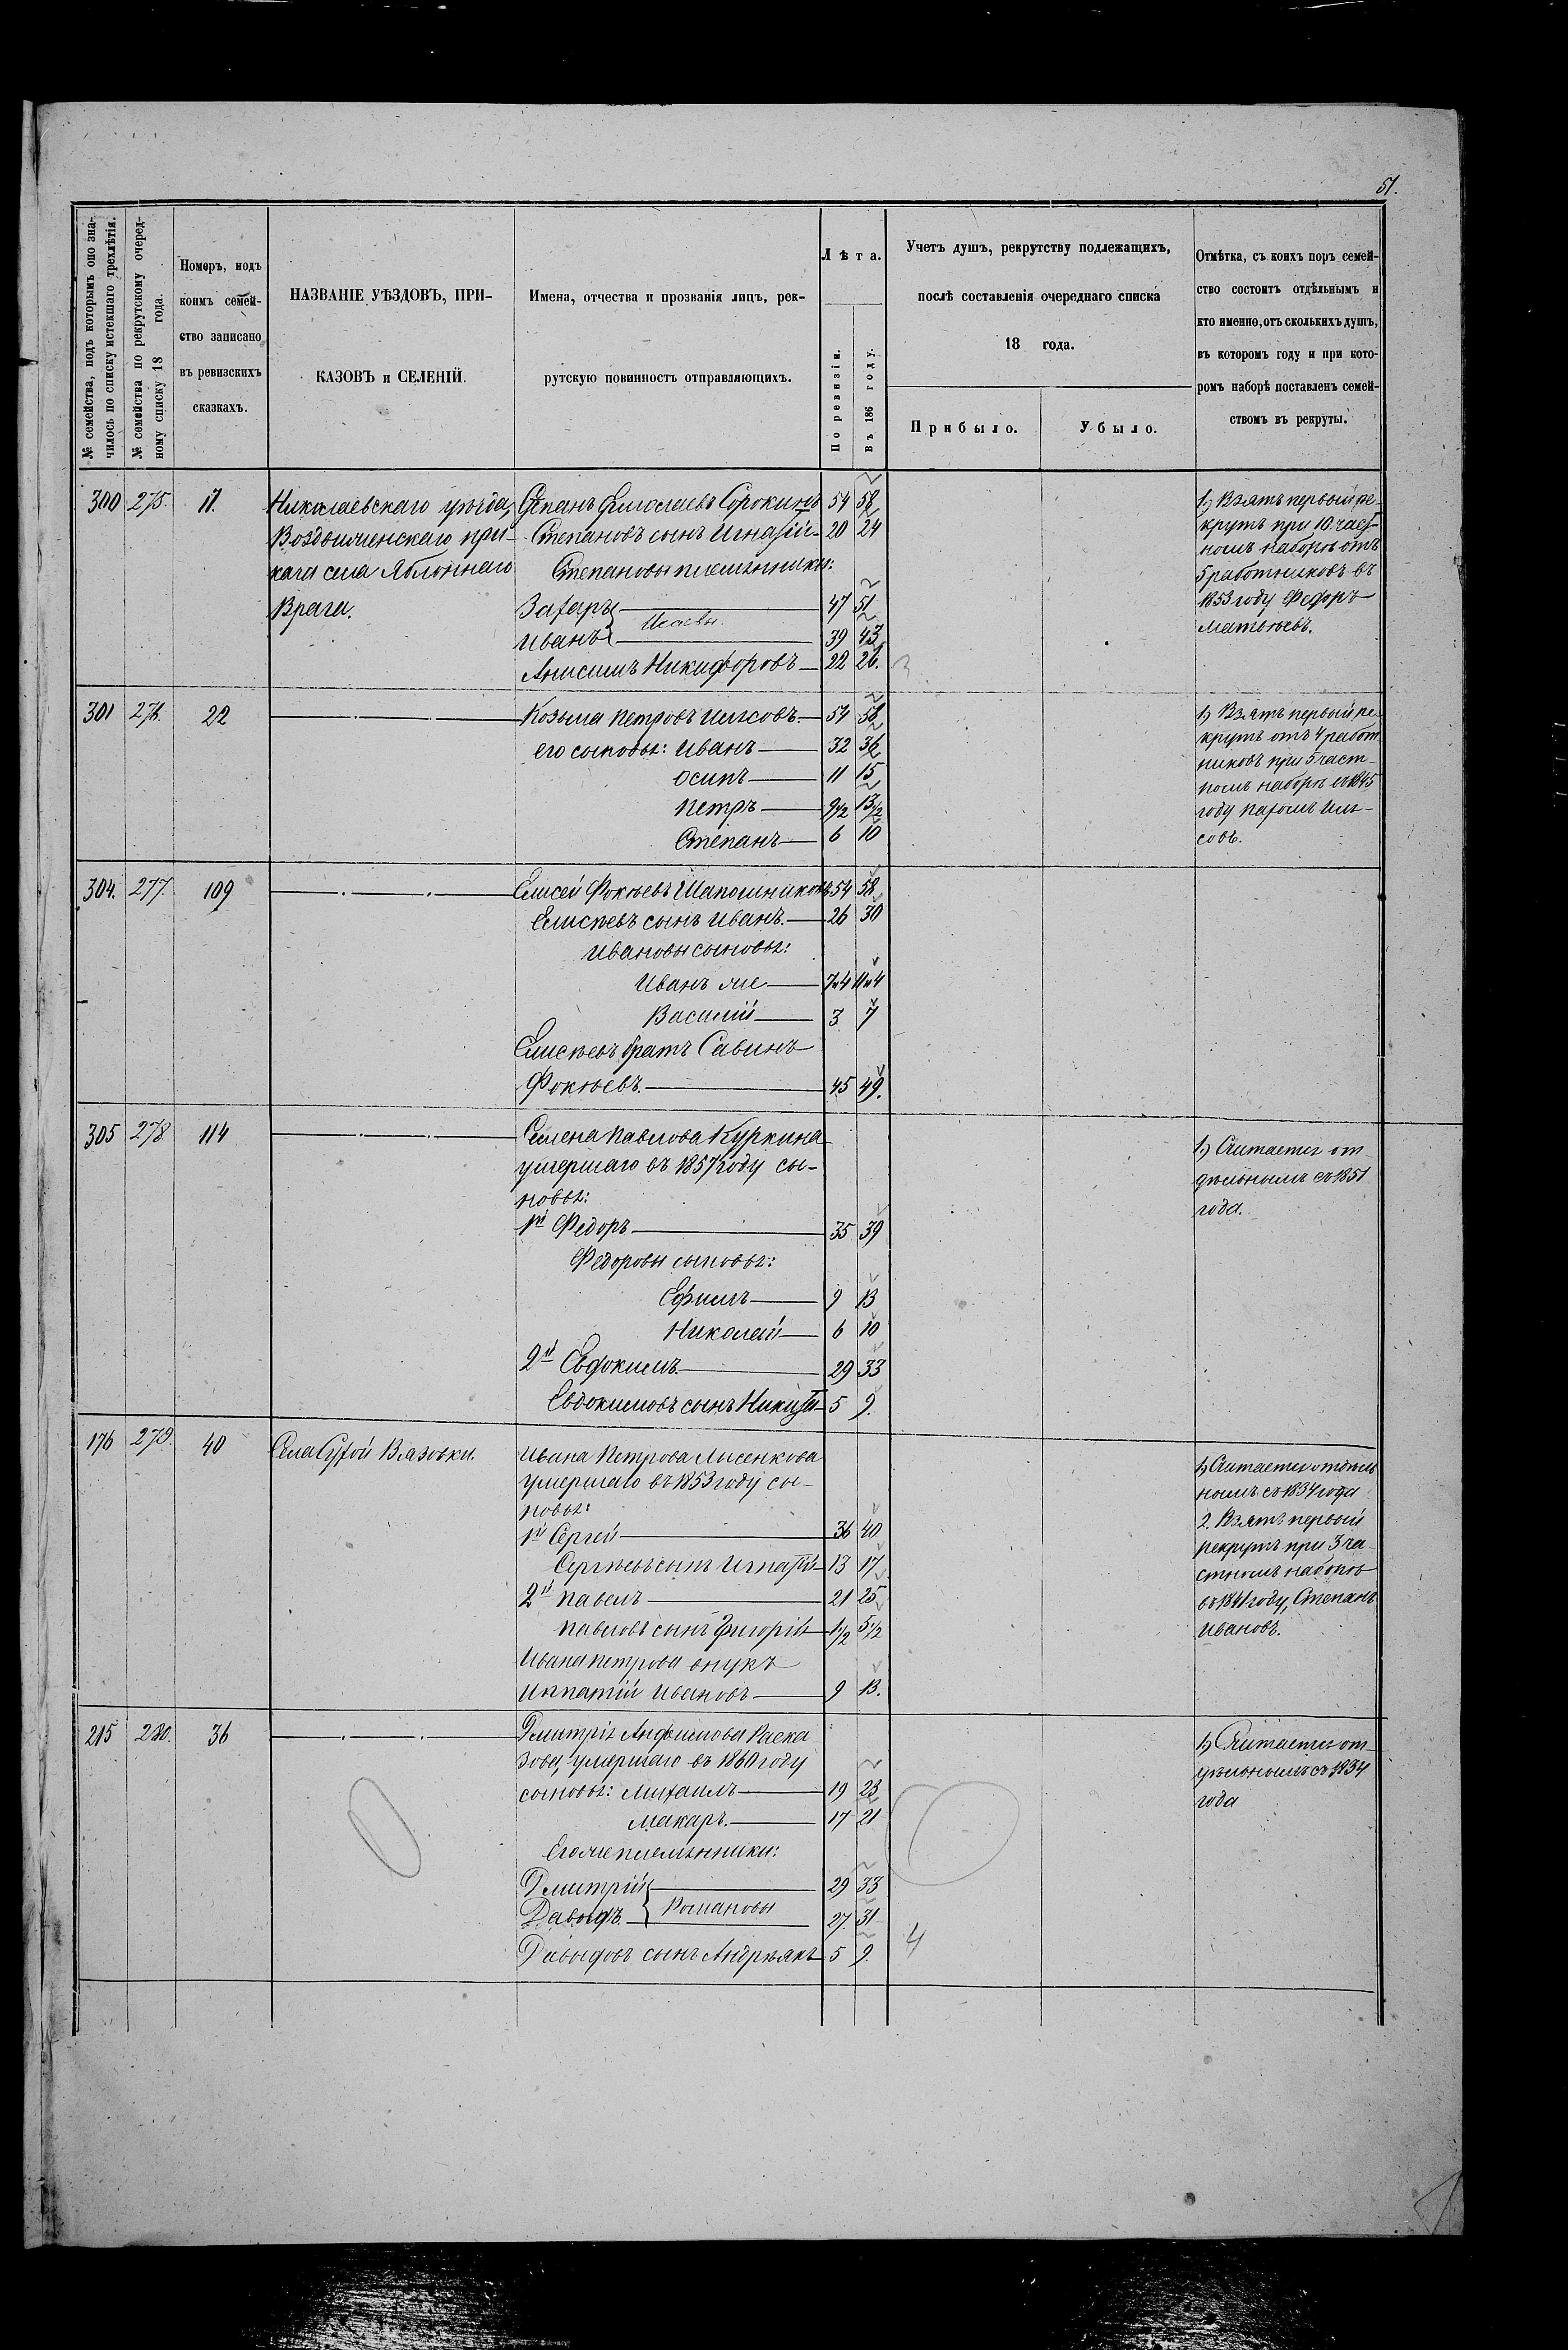 51.
№ семейства, подъ которымъ оно зна-
чилось по списку истекшаго трехлѣтія.
№ семейства по рекрутскому очеред-
ному списку 18 года.
Номеръ, подъ
коимъ семей-
ство записано
въ ревизскихъ
сказкахъ.
НАЗВАНІЕ УѢЗДОВЪ, ПРИ-
КАЗОВЪ и СЕЛЕНІЙ.
Имена, отчества и прозванія лицъ, рек-
рутскую повинность отправляющихъ.
Лѣта.
По ревизіи.
Въ 186 году.
Учетъ душъ, рекрутству подлежащихъ,
послѣ составленія очереднаго списка
18 года.
Прибыло.
Убыло.
Отмѣтка, съ коихъ поръ семей-
ство состоитъ отдѣльнымъ и
кто именно, отъ сколькихъ душъ,
въ котором году и при кото-
ромъ наборѣ поставленъ семей-
ствомъ въ рекруты.
300 275. 17.
Николаевскаго уѣзда,
Воздвиженскаго при-
каза села Яблоннаго
Врага.
Степанъ Сорокинъ 54 58
Степановъ сынъ Игнатій 20 24
Степановы племянники:
Захаръ 47 51
Иванъ 39 43
Анисимъ Никифоровъ 22 26.
1) Взятъ первый ре-
крутъ при 10 част-
номъ наборѣ отъ
5 работниковъ въ
1853 году Федоръ
Матвѣевъ.
301 276. 22
Козьма Петровъ 54 58
его сыновья: Иванъ 32 36
Осипъ 11 15
Петръ 9½ 13½
Степанъ 6 10
1) Взятъ первый ре-
крутъ отъ 4 работ
никовъ при 5 част-
номъ наборѣ въ 1845
году
304. 277. 109
Елисей Фокѣевъ Шапошниковъ 54 58
Елисѣевъ сынъ Иванъ. 26 30
Ивановы сыновья:
Иванъ же
Василій 3 7
Елисѣевъ братъ Савинъ
Фокѣевъ. 45 49.
305 278 114
Семена Павлова Куркина
умершаго въ 1857 году сы-
новья:
1й Федоръ 35 39
Федоровы сыновья:
Ефимъ 9 13
Николай 6 10
2й Евдокимъ 29 33
Евдокимовъ сынъ Никита 5 9.
1) Считается от-
дѣльнымъ съ 1851
года.
176 279. 40
Села Сухой Вязовки.
Ивана Петрова Лысенкова
умершаго въ 1853 году сы-
новья:
1й Сергей 36 40
Сергѣевъ сынъ Игнатій 13 17
2й Павелъ 21 25
Павловъ сынъ Григорій 1½ 5½
Ивана Петрова внукъ
Ипатій Ивановъ 9 13.
1) Считается отдѣль
нымъ съ 1834 года
2. Взятъ первый
рекрутъ при 3 ча-
стномъ наборѣ
въ 1841 году, Степанъ
Ивановъ.
215 280. 36
Дмитрія Анфимова Раска
зова, умершаго въ 1860 году
сыновья: Михаилъ 19 23
Макаръ. 17 21
Его же племянники:
Дмитрій 29 33
Романовы
Давыдъ 27. 31
Давыдовъ сынъ Андреянъ 5 9.
4
1) Считается от-
дѣльнымъ съ 1834
года